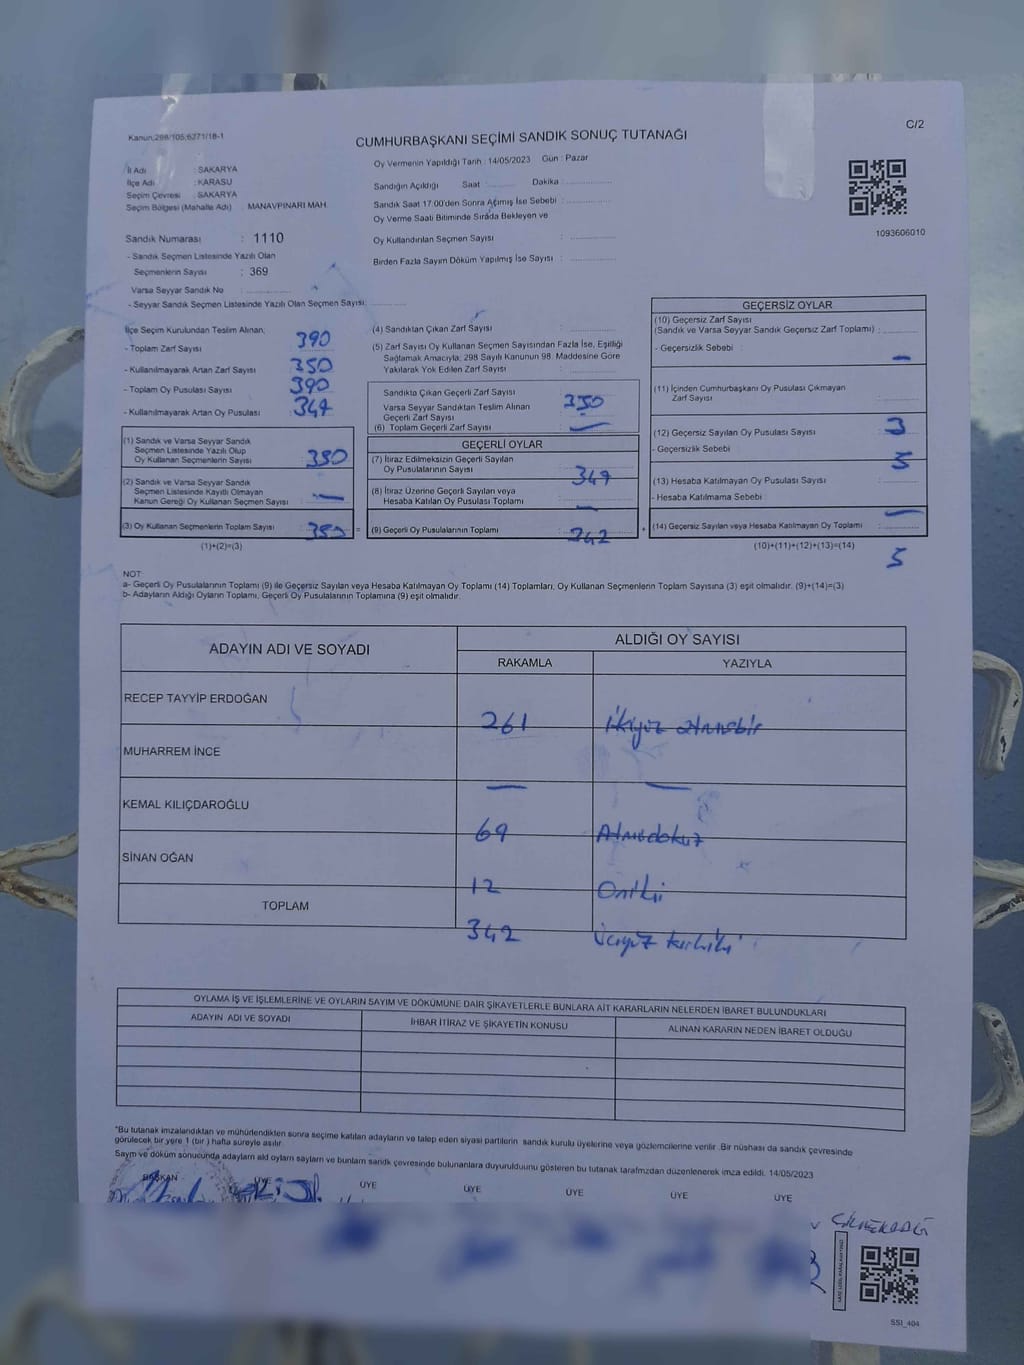 Kanun;298/105;6271/18-1
C/2
CUMHURBAŞKANI SEÇİMİ SANDIK SONUÇ TUTANAĞI
İl Adı : SAKARYA
İlçe Adı : KARASU
Seçim Çevresi : SAKARYA
Seçim Bölgesi (Mahalle Adı) : MANAVPINARI MAH.
Sandık Numarası : 1110
- Sandık Seçmen Listesinde Yazılı Olan
Seçmenlerin Sayısı : 369
Varsa Seyyar Sandık No :
- Seyyar Sandık Seçmen Listesinde Yazılı Olan Seçmen Sayısı:
Oy Vermenin Yapıldığı Tarih : 14/05/2023 Gün : Pazar
Sandığın Açıldığı Saat : Dakika :
Sandık Saat 17.00'den Sonra Açılmış İse Sebebi :
Oy Verme Saati Bitiminde Sırada Bekleyen ve
Oy Kullandırılan Seçmen Sayısı :
Birden Fazla Sayım Döküm Yapılmış İse Sayısı :
1093606010
İlçe Seçim Kurulundan Teslim Alınan;
- Toplam Zarf Sayısı : 390
- Kullanılmayarak Artan Zarf Sayısı : 350
- Toplam Oy Pusulası Sayısı : 390
- Kullanılmayarak Artan Oy Pusulası : 347
(1) Sandık ve Varsa Seyyar Sandık
Seçmen Listesinde Yazılı Olup
Oy Kullanan Seçmenlerin Sayısı : 350
(2) Sandık ve Varsa Seyyar Sandık
Seçmen Listesinde Kayıtlı Olmayan
Kanun Gereği Oy Kullanan Seçmen Sayısı : —
(3) Oy Kullanan Seçmenlerin Toplam Sayısı : 350 =
(1)+(2)=(3)
(4) Sandıktan Çıkan Zarf Sayısı :
(5) Zarf Sayısı Oy Kullanan Seçmen Sayısından Fazla İse, Eşitliği
Sağlamak Amacıyla; 298 Sayılı Kanunun 98. Maddesine Göre
Yakılarak Yok Edilen Zarf Sayısı :
Sandıkta Çıkan Geçerli Zarf Sayısı
350
Varsa Seyyar Sandıktan Teslim Alınan
Geçerli Zarf Sayısı
(6) Toplam Geçerli Zarf Sayısı : —
GEÇERLİ OYLAR
(7) İtiraz Edilmeksizin Geçerli Sayılan
Oy Pusulalarının Sayısı : 347
(8) İtiraz Üzerine Geçerli Sayılan veya
Hesaba Katılan Oy Pusulası Toplamı : —
(9) Geçerli Oy Pusulalarının Toplamı : 342 +
GEÇERSİZ OYLAR
(10) Geçersiz Zarf Sayısı
(Sandık ve Varsa Seyyar Sandık Geçersiz Zarf Toplamı) :
- Geçersizlik Sebebi : —
(11) İçinden Cumhurbaşkanı Oy Pusulası Çıkmayan
Zarf Sayısı :
(12) Geçersiz Sayılan Oy Pusulası Sayısı : 3
- Geçersizlik Sebebi : 5
(13) Hesaba Katılmayan Oy Pusulası Sayısı :
- Hesaba Katılmama Sebebi : —
(14) Geçersiz Sayılan veya Hesaba Katılmayan Oy Toplamı :
(10)+(11)+(12)+(13)=(14)
5
NOT:
a- Geçerli Oy Pusulalarının Toplamı (9) ile Geçersiz Sayılan veya Hesaba Katılmayan Oy Toplamı (14) Toplamları, Oy Kullanan Seçmenlerin Toplam Sayısına (3) eşit olmalıdır. (9)+(14)=(3)
b- Adayların Aldığı Oyların Toplamı, Geçerli Oy Pusulalarının Toplamına (9) eşit olmalıdır.
ADAYIN ADI VE SOYADI ALDIĞI OY SAYISI
RAKAMLA YAZIYLA
RECEP TAYYİP ERDOĞAN 261 İkiyüz altmışbir
MUHARREM İNCE — —
KEMAL KILIÇDAROĞLU 69 Atmışdokuz
SİNAN OĞAN 12 Oniki
TOPLAM 342 Üçyüz kırkiki
OYLAMA İŞ VE İŞLEMLERİNE VE OYLARIN SAYIM VE DÖKÜMÜNE DAİR ŞİKAYETLERLE BUNLARA AİT KARARLARIN NELERDEN İBARET BULUNDUKLARI
ADAYIN ADI VE SOYADI İHBAR İTİRAZ VE ŞİKAYETİN KONUSU ALINAN KARARIN NEDEN İBARET OLDUĞU
"Bu tutanak imzalandıktan ve mühürlendikten sonra seçime katılan adayların ve talep eden siyasi partilerin sandık kurulu üyelerine veya gözlemcilerine verilir. Bir nüshası da sandık çevresinde
görülecek bir yere 1 (bir ) hafta süreyle asılır.
Sayım ve döküm sonucunda adayların ald oyların sayıları ve bunların sandık çevresinde bulunanlara duyurulduunu gösteren bu tutanak tarafımızdan düzenlenerek imza edildi. 14/05/2023
BAŞKAN ÜYE ÜYE ÜYE ÜYE ÜYE ÜYE
SSİ_404